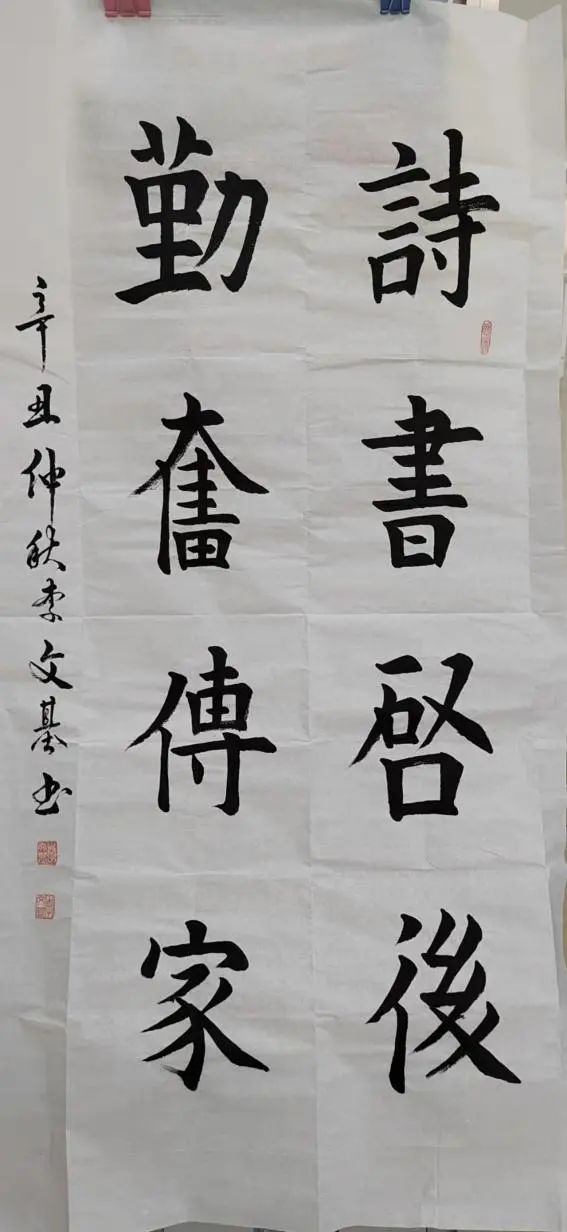 詩書啓後
勤奮傳家
辛丑仲秋李文基书